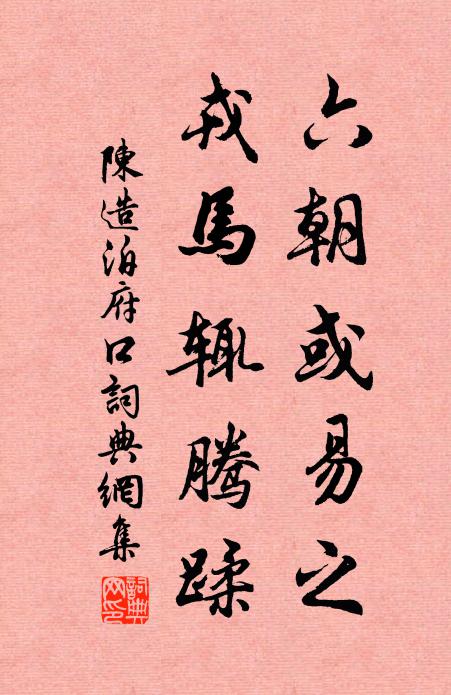 六朝或易之
戎馬輒腾蹂
陳造泊府口詞典網集
詞典網印